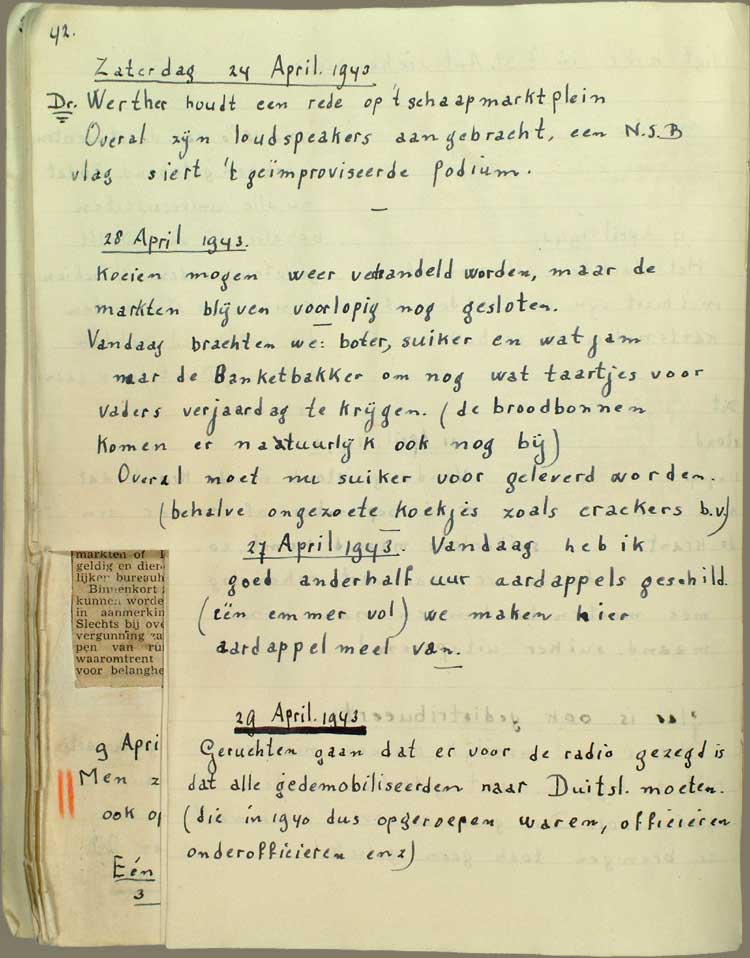 42.
Zaterdag 24 April. 1943
Dr. Werther houdt een rede op 't schaapmarktplein
Overal zijn loudspeakers aangebracht, een N.S.B
vlag siert 't geïmproviseerde podium.
28 April 1943.
Koeien mogen weer verhandeld worden, maar de
markten blijven voorlopig nog gesloten.
Vandaag brachten we: boter, suiker en wat jam
naar de Banketbakker om nog wat taartjes voor
vaders verjaardag te krijgen. (de broodbonnen
komen er natuurlijk ook nog bij)
Overal moet nu suiker voor geleverd worden.
(behalve ongezoete koekjes zoals crackers b.v)
27 April 1943. Vandaag heb ik
goed anderhalf uur aardappels geschild.
(één emmer vol) we maken hier
aardappelmeel van.
29 April. 1943
Geruchten gaan dat er voor de radio gezegd is
dat alle gedemobiliseerden naar Duitsl. moeten.
(die in 1940 dus opgeroepen waren, officieren
onderofficieren enz)
markten of
geldig en dien
lijker bureauh
Binnenkort
kunnen worde
in aanmerkin
Slechts bij ove
vergunning za
pen van ru
waaromtrent
voor belanghe
9 Apri
Men z
ook op
Eén
3